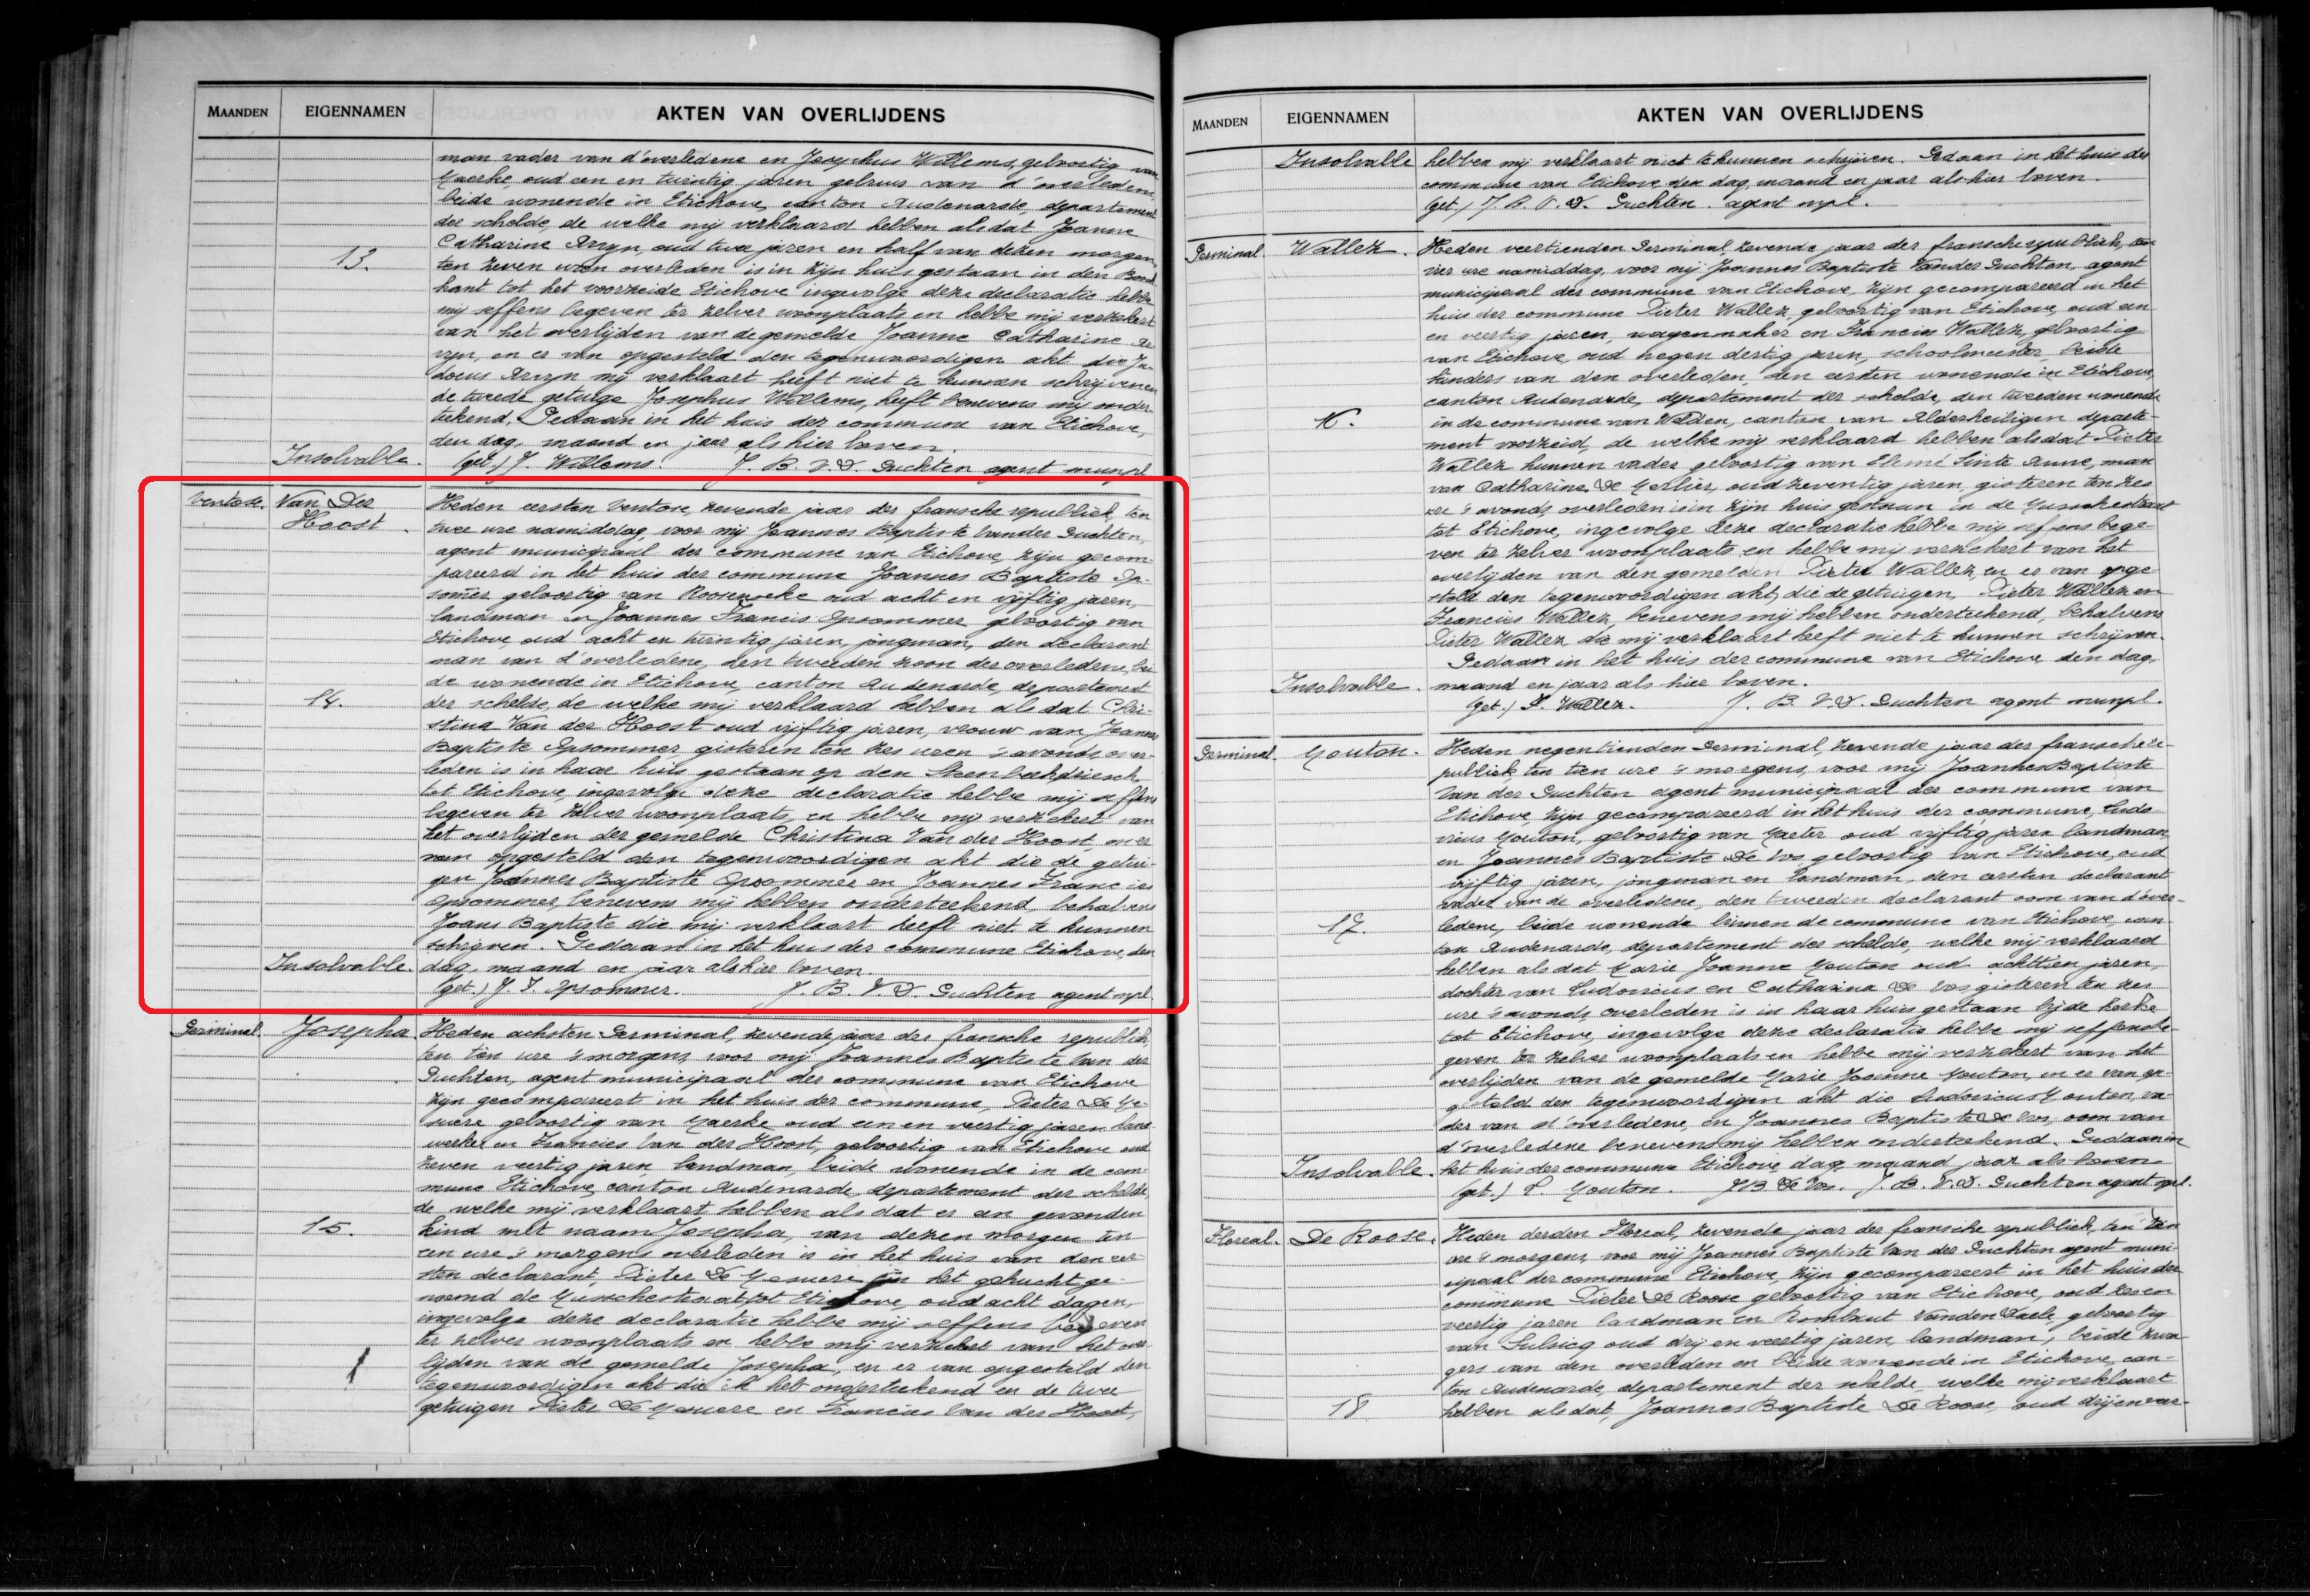 MAANDEN EIGENNAMEN AKTEN VAN OVERLIJDENS
man vader van d'overledene en Josephus Willems, geboortig van
Maerke, oud een en twintig jaren gebuur van d'overledene,
beide wonende in Etichove, canton Audenarde, departement
der schelde, de welke mij verklaard hebben als dat Joanne
Catharine Arryn, oud twee jaren en half van dezen morgen
13. ten zeven uren overleden is in zijn huis gestaan in den Boord
kant tot het voorzeide Etichove ingevolge deze declaratie hebbe
mij seffens begeven ter zelver woonplaats en hebbe mij verzekert
van het overlijden van de gemelde Joanne Catharine Ar-
ryn, en er van opgesteld den tegenwoordigen akt die Ju-
docus Arryn mij verklaart heeft niet te kunnen schrijven en
de tweede getuige Josephus Willems, heeft benevens mij onder-
teekend. Gedaan in het huis der commune van Etichove,
den dag, maand en jaar als hier boven.
Insolvable. (get.) J. Willems. J. B. V. D. Guchten agent munpl
Ventose. Van Der Heden eersten Ventose, zevende jaar der fransche republiek, ten
Hoost twee ure namiddag, voor mij Joannes Baptiste Vander Guchten,
agent municipaal der commune van Etichove, zijn gecom-
pareerd in het huis der commune Joannes Baptiste Op-
sommer geboortig van Roosenseke oud acht en vijftig jaren,
landman en Joannes Francis Opsommer geboortig van
Etichove, oud acht en twintig jaren, jongman, den declarant
man van d'overledene, den tweeden zoon der overledene, bei-
de wonende in Etichove, canton Audenarde, departement
14. der schelde, de welke mij verklaard hebben als dat Chri-
stina Van der Hoost oud vijftig jaren, vrouw van Joannes
Baptiste Opsommer, gisteren ten zes uren 's avonds over-
leden is in haar huis gestaan op den Steenbeekdriesch
tot Etichove, ingevolge deze declaratie hebbe mij seffens
begeven ter zelver woonplaats, en hebbe mij verzekert van
het overlijden der gemelde Christina Van der Hoost, en er
van opgesteld den tegenwoordigen akt die de getui-
gen Joannes Baptiste Opsommer en Joannes Francies
Opsommer, benevens mij hebben onderteekend, behalvens
Joans Baptiste die mij verklaart heeft niet te kunnen
schrijven. Gedaan in het huis der commune Etichove, den
Insolvable. dag, maand en jaar als hier boven.
(get.) J. F. Opsommer. J. B. V. D. Guchten agent mpl.
Germinal. Josepha. Heden achsten Germinal, zevende jaar der fransche republiek,
ten tien ure 's morgens, voor mij Joannes Baptiste Van der
Guchten, agent municipaal der commune van Etichove
zijn gecompareert in het huis der commune, Pieter De Me-
suere geboortig van Maerke oud een en veertig jaren land
werker en Francies Van der Hoost, geboortig van Etichove oud
zeven veertig jaren landman, beide wonende in de com-
mune Etichove, canton Audenarde, departement der schelde,
de welke mij verklaart hebben als dat er een gevonden
15. kind met naam Josepha, van dezen morgen ten
een ure 's morgens overleden is in het huis van den eer-
sten declarant, Pieter De Mesuere in het gehucht ge-
noemd de Musschestraat tot Etichove, oud acht dagen,
ingevolge deze declaratie hebbe mij seffens begeven
ter zelver woonplaats en hebbe mij verzekert van het over
lijden van de gemelde Josepha, en er van opgesteld den
tegenwoordigen akt die ik heb onderteekend en de twee
getuigen Pieter De Mesuere en Francies Van der Hoost,
MAANDEN EIGENNAMEN AKTEN VAN OVERLIJDENS
Insolvable hebben mij verklaart niet te kunnen schrijven. Gedaan in het huis der
commune van Etichove den dag, maand en jaar als hier boven.
(get.) J. B. V. D. Guchten. agent mpl.
Germinal. Wallez. Heden veertienden Germinal, zevende jaar der fransche republiek, ten
vier ure namiddag, voor mij Joannes Baptiste Vander Guchten, agent
municipaal der commune van Etichove, zijn gecompareerd in het
huis der commune Pieter Wallez, geboortig van Etichove, oud een
en veertig jaren, wagenmaker en Francies Wallez, geboortig
van Etichove, oud negen dertig jaren, schoolmeester, beide
kinders van den overleden, den eersten wonende in Etichove,
canton Audenarde, departement der schelde, den tweeden wonende
16. in de commune van Welden, canton van Alderheiligen departe-
ment voorzeid, de welke mij verklaard hebben als dat Pieter
Wallez hunnen vader geboortig van Elemé Sinte Anne, man
van Catharine De Merlier, oud zeventig jaren, gisteren ten zes
ure 's avonds overleden is in zijn huis gestaan in de Musschestraat
tot Etichove, ingevolge deze declaratie hebbe mij seffens bege-
ven ter zelver woonplaats en hebbe mij verzekert van het
overlijden van den gemelden Pieter Wallez, en er van opge-
steld den tegenwoordigen akt, die de getuigen, Pieter Wallez en
Francies Wallez, benevens mij hebben onderteekend, behalvens
Pieter Wallez die mij verklaart heeft niet te kunnen schrijven.
Gedaan in het huis der commune van Etichove, den dag,
Insolvable. maand en jaar als hier boven.
(get.) F. Wallez. J. B. V. D. Guchten agent munpl.
Germinal. Mouton. Heden negentienden Germinal, zevende jaar der fransche re-
publiek, ten tien ure 's morgens, voor mij Joannes Baptiste
Van der Guchten agent municipaal der commune van
Etichove, zijn gecompareerd in het huis der commune, Ludo-
vicus Mouton, geboortig van Mater oud vijftig jaren landman
en Joannes Baptiste De Vos geboortig van Etichove, oud
vijftig jaren, jongman en landman, den eersten declarant
vader van de overledene, den tweeden declarant oom van d'over-
17. ledene, beide wonende binnen de commune van Etichove, can-
ton Audenarde, departement der schelde, welke mij verklaard
hebben als dat Marie Joanne Mouton oud achttien jaren,
dochter van Ludovicus en Catharina De Vos, gisteren ten zes
ure 's avonds overleden is in haar huis gestaan bij de kerke
tot Etichove, ingevolge deze declaratie hebbe mij seffens be-
geven ter zelver woonplaats en hebbe mij verzekert van het
overlijden van de gemelde Marie Joanne Mouton, en er van op-
gesteld den tegenwoordigen akt die Ludovicus Mouton, va-
der van d'overledene, en Joannes Baptiste De Vos, oom van
d'overledene benevens mij hebben onderteekend. Gedaan in
Insolvable. het huis der commune Etichove, dag, maand jaar als boven
(get.) L. Mouton. J. B. De Vos. J. B. V. D. Guchten agent mpl.
Floreal. De Roose. Heden derden Floreal, zevende jaar der fransche republiek, ten tien
ure 's morgens, voor mij Joannes Baptiste Van der Guchten agent muni-
cipaal der commune Etichove, zijn gecompareert in het huis der
commune Pieter De Roose geboortig van Etichove, oud zes en
veertig jaren landman en Rombaut Vanden Daele, geboortig
van Sulsicq oud drij en veertig jaren, landman, beide zwa-
gers van den overleden en beide wonende in Etichove, can-
ton Audenarde, departement der schelde, welke mij verklaart
18. hebben als dat, Joannes Baptiste De Roose, oud drij en veer-